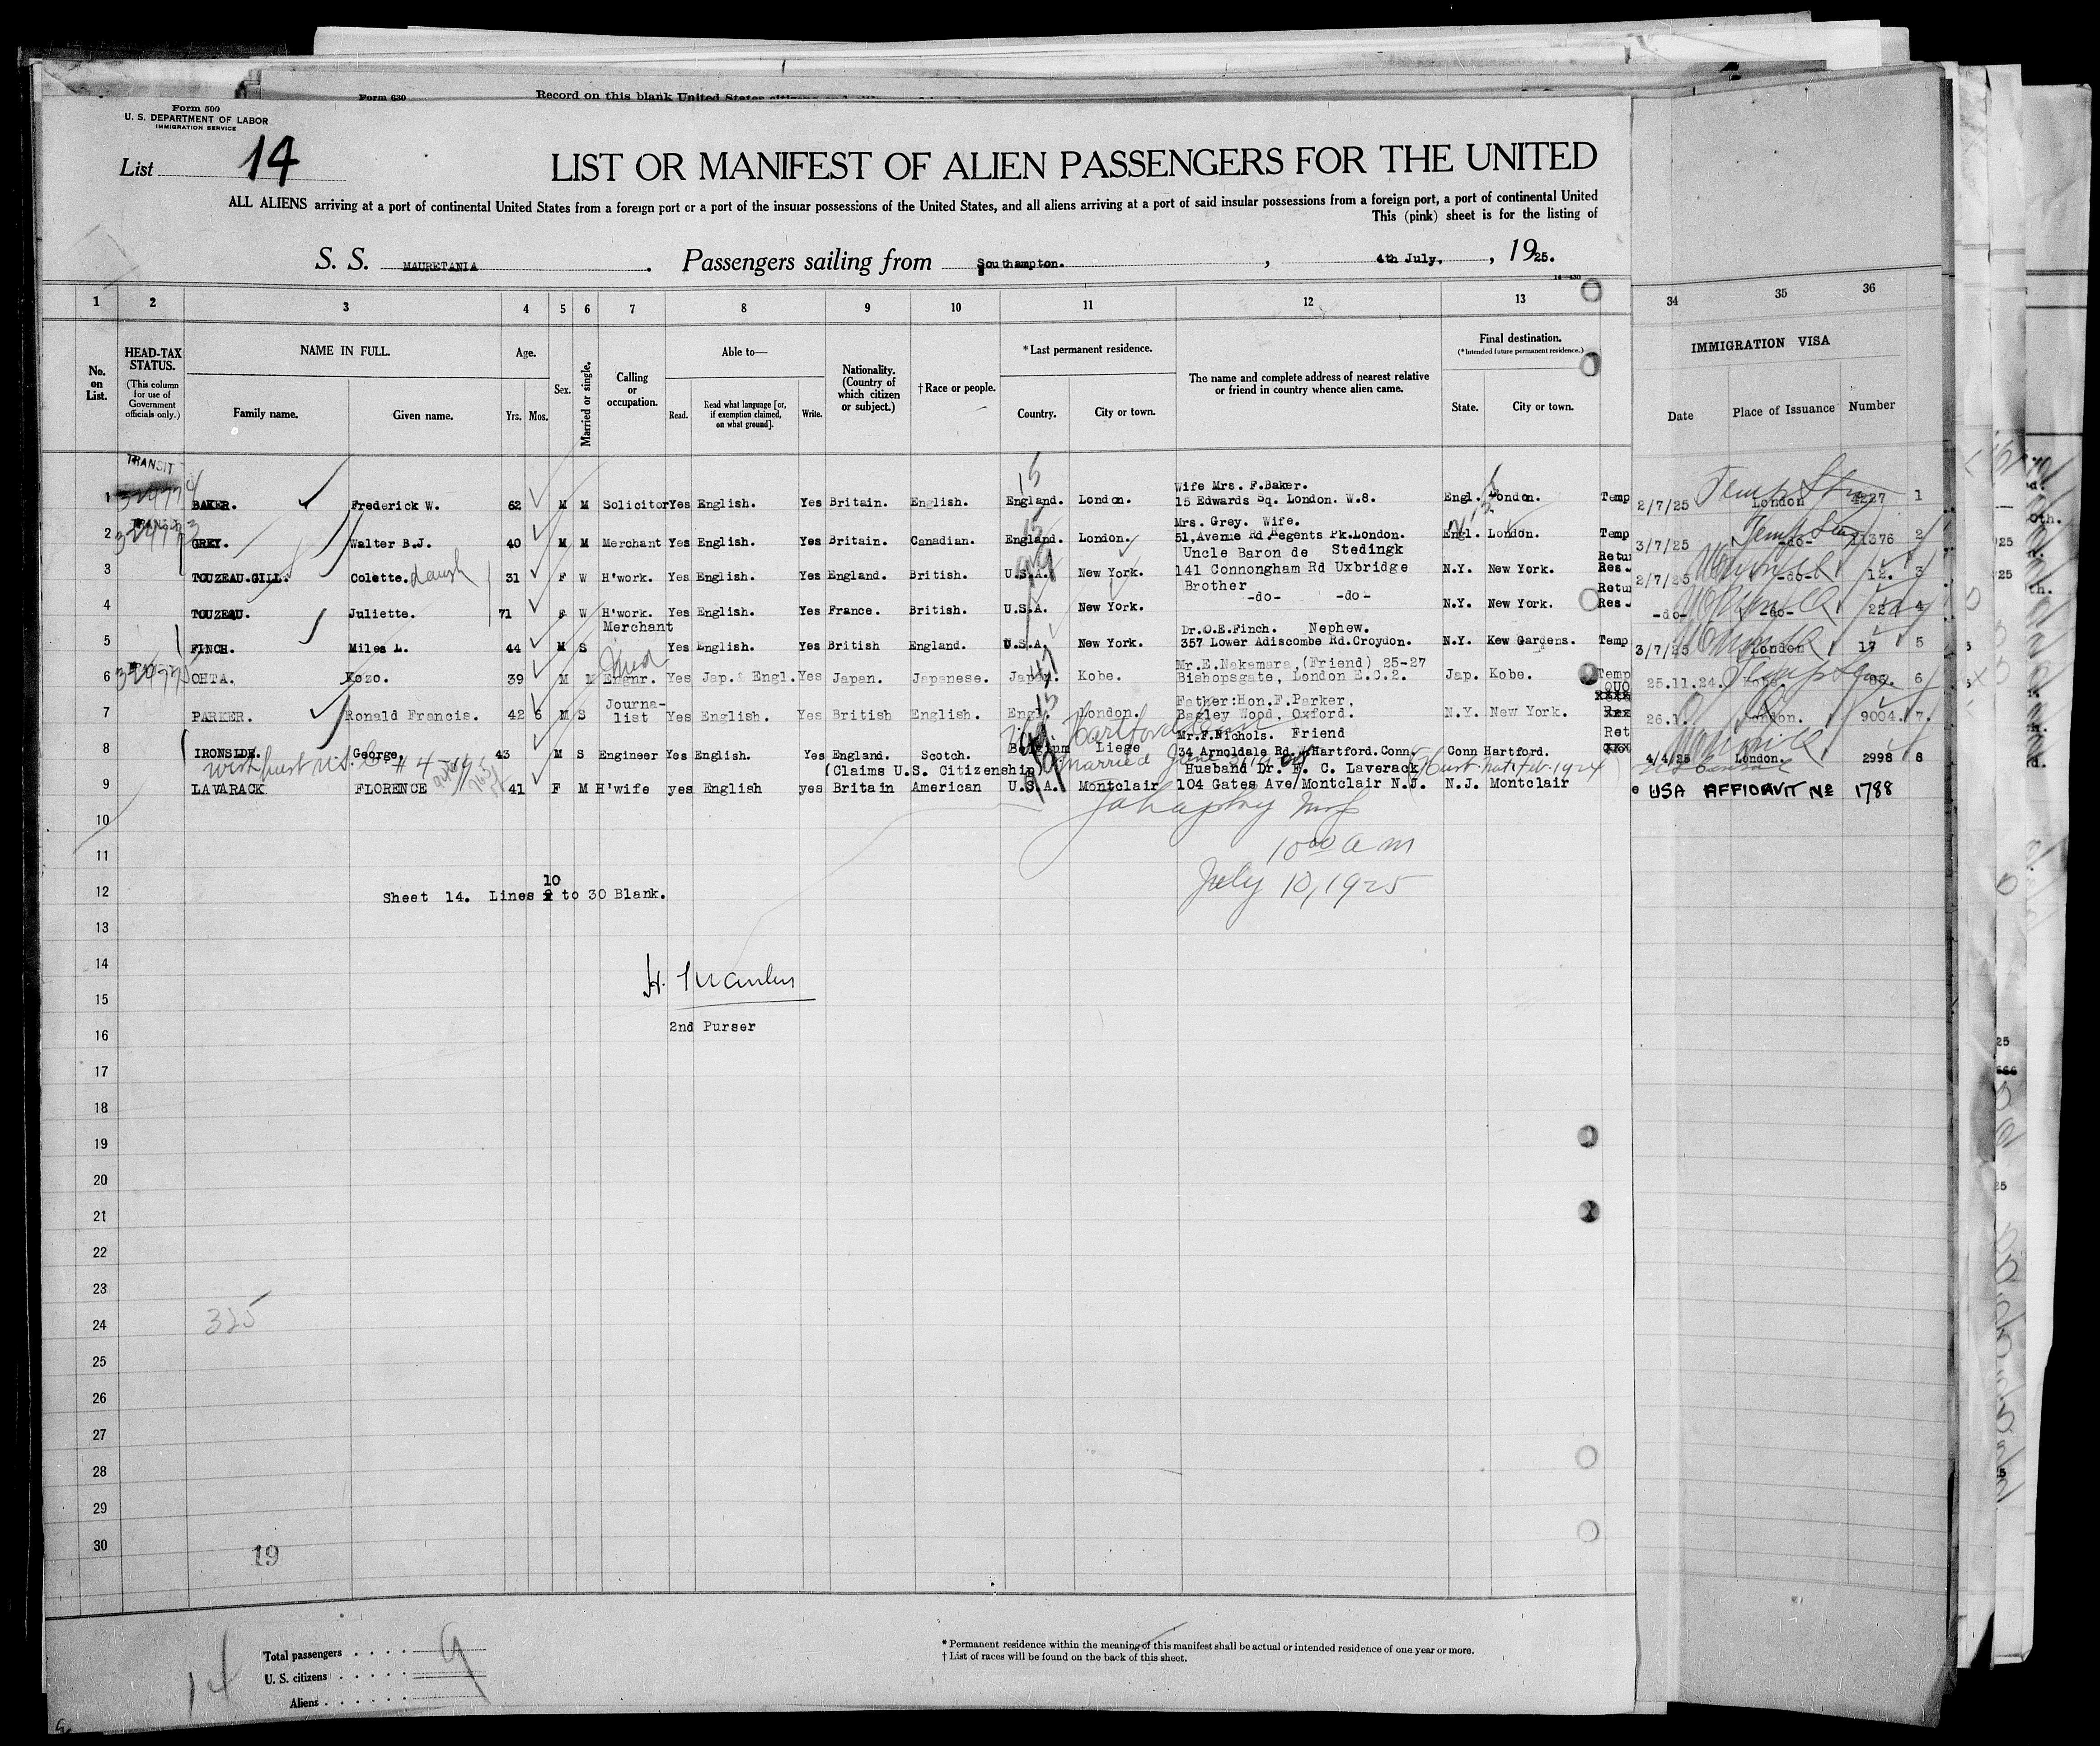 Form 630
Record on this blank United States citizens
Form 500
U. S. DEPARTMENT OF LABOR
IMMIGRATION SERVICE
List 14
LIST OR MANIFEST OF ALIEN PASSENGERS FOR THE UNITED
ALL ALIENS arriving at a port of continental United States from a foreign port or a port of the insular possessions of the United States, and all aliens arriving at a port of said insular possessions from a foreign port, a port of continental United
This (pink) sheet is for the listing of
S. S. MAURETANIA . Passengers sailing from Southampton. , 4th July. , 1925.
1 2 3 4 5 6 7 8 9 10 11 12 13 34 35 36
No. on List.
HEAD-TAX STATUS.
(This column for use of Government officials only.)
NAME IN FULL.
Family name. Given name.
Age.
Yrs. Mos.
Sex.
Married or single.
Calling or occupation.
Able to—
Read. Read what language [or, if exemption claimed, on what ground]. Write.
Nationality. (Country of which citizen or subject.)
†Race or people.
*Last permanent residence.
Country. City or town.
The name and complete address of nearest relative or friend in country whence alien came.
Final destination.
(*Intended future permanent residence.)
State. City or town.
IMMIGRATION VISA
Date Place of Issuance Number
TRANSIT
Wife Mrs. F.Baker.
1 BAKER. Frederick W. 62 M M Solicitor Yes English. Yes Britain. English. England. London. 15 Edwards Sq. London. W.8. Engl. London. Temp 2/7/25 London 4227 1
Mrs. Grey. Wife.
2 GREY. Walter B.J. 40 M M Merchant Yes English. Yes Britain. Canadian. England. London. 51,Avenue Rd Regents Pk.London. Engl. London. Temp 3/7/25 -do- 21376 2
Uncle Baron de Stedingk
3 TOUZEAU.GILL. Colette. daugh 31 F W H'work. Yes English. Yes England. British. U.S.A. New York. 141 Connongham Rd Uxbridge N.Y. New York. Retu Res. 2/7/25 -do- 12. 3
Brother
4 TOUZEAU. Juliette. 71 F W H'work. Yes English. Yes France. British. U.S.A. New York. -do- -do- N.Y. New York. Retu Res. -do- -do- 22 4
Merchant Dr.O.E.Finch. Nephew.
5 FINCH. Miles L. 44 M S Yes English. Yes British England. U.S.A. New York. 357 Lower Adiscombe Rd.Croydon. N.Y. Kew Gardens. Temp 3/7/25 London 17 5
Mr.E.Nakamara,(Friend) 25-27
6 OHTA. Kozo. 39 M M Engnr. Yes Jap.& Engl. Yes Japan. Japanese. Japan. Kobe. Bishopsgate, London E.C.2. Jap. Kobe. Temp 25.11.24. Kobe. 6
Journa- Father:Hon.F.Parker, QUO
7 PARKER. Ronald Francis. 42 6 M S list Yes English. Yes British English. Engl. London. Bagley Wood, Oxford. N.Y. New York. 26.1. London. 9004. 7.
Mr.F.Nichols. Friend Ret
8 IRONSIDE. George. 43 M S Engineer Yes English. Yes England. Scotch. Belgium Liege 34 Arnoldale Rd. Hartford.Conn. Conn Hartford. 4/4/25 London. 2998 8
(Claims U.S. Citizenship) Married June Husband Dr. F. C. Laverack
9 LAVARACK FLORENCE 41 F M H'wife yes English yes Britain American U.S.A. Montclair 104 Gates Ave/Montclair N.J. N.J. Montclair USA AFFIDAVIT No 1788
10
11
12
13
14
15
16
17
18
19
20
21
22
23
24
25
26
27
28
29
30
10 00 a m
July 10, 1925
10
Sheet 14. Lines 9 to 30 Blank.
2nd Purser
325
19
14
Total passengers . . . . 9
U. S. citizens . . . . .
Aliens . . . . . .
* Permanent residence within the meaning of this manifest shall be actual or intended residence of one year or more.
† List of races will be found on the back of this sheet.